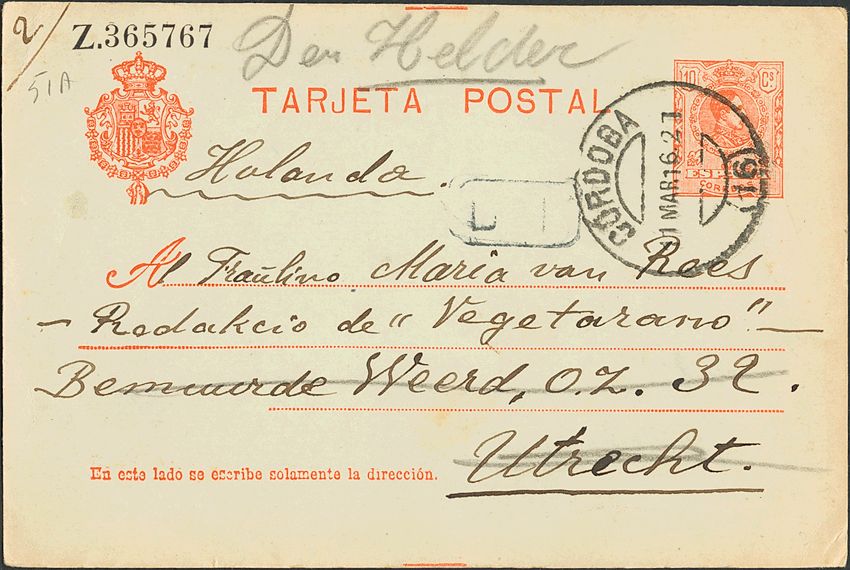 2/
Z.365767
51A
Den Helder
TARJETA POSTAL
10 Cs
CORREOS
CÓRDOBA
1 MAR 16.2T
Holanda.
Al Fraŭlino Maria van Rees
— Redakcio de "Vegetarano" —
Bemuurde Weerd, O.Z. 32.
Utrecht.
En este lado se escribe solamente la dirección.